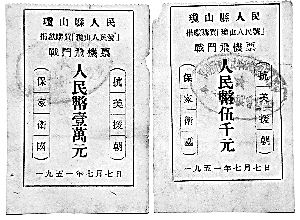 瓊山縣人民
捐獻購買「瓊山人民號」
戰鬥飛機票
抗美援朝
人民幣壹萬元
保家衛國
一九五一年七月七日
瓊山縣人民
捐獻購買「瓊山人民號」
戰鬥飛機票
抗美援朝
人民幣伍千元
保家衛國
一九五一年七月七日